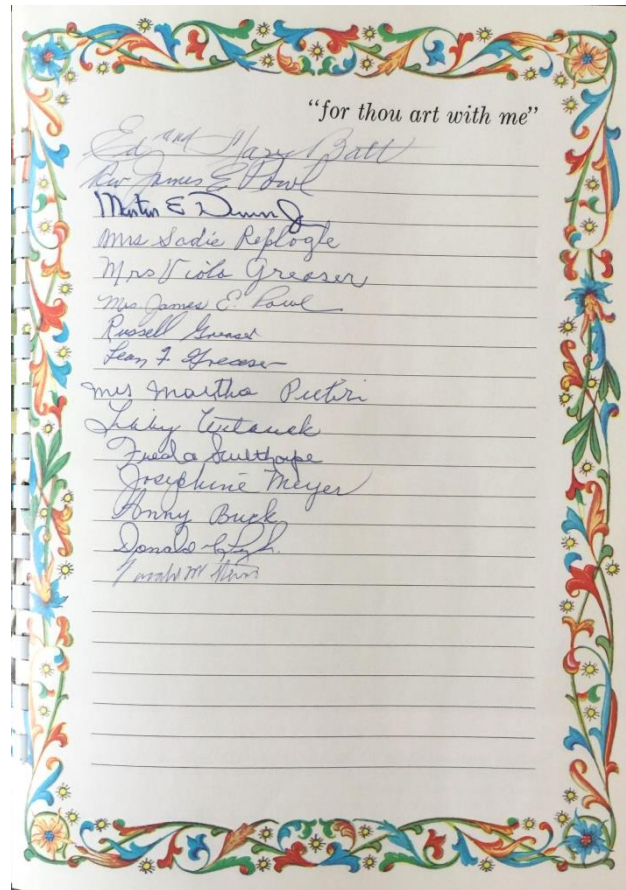 "for thou art with me"
Ed and Mary Batt
Rev James E Powl
Martin E Dunn Jr
Mrs Sadie Replogle
Mrs Viola Greaser
Mrs. James E. Powl
Russell Greaser
Jean F. Greaser
Mrs Martha Pietri
Freda Sculthorpe
Josephine Meyer
Anny Buck
Donald